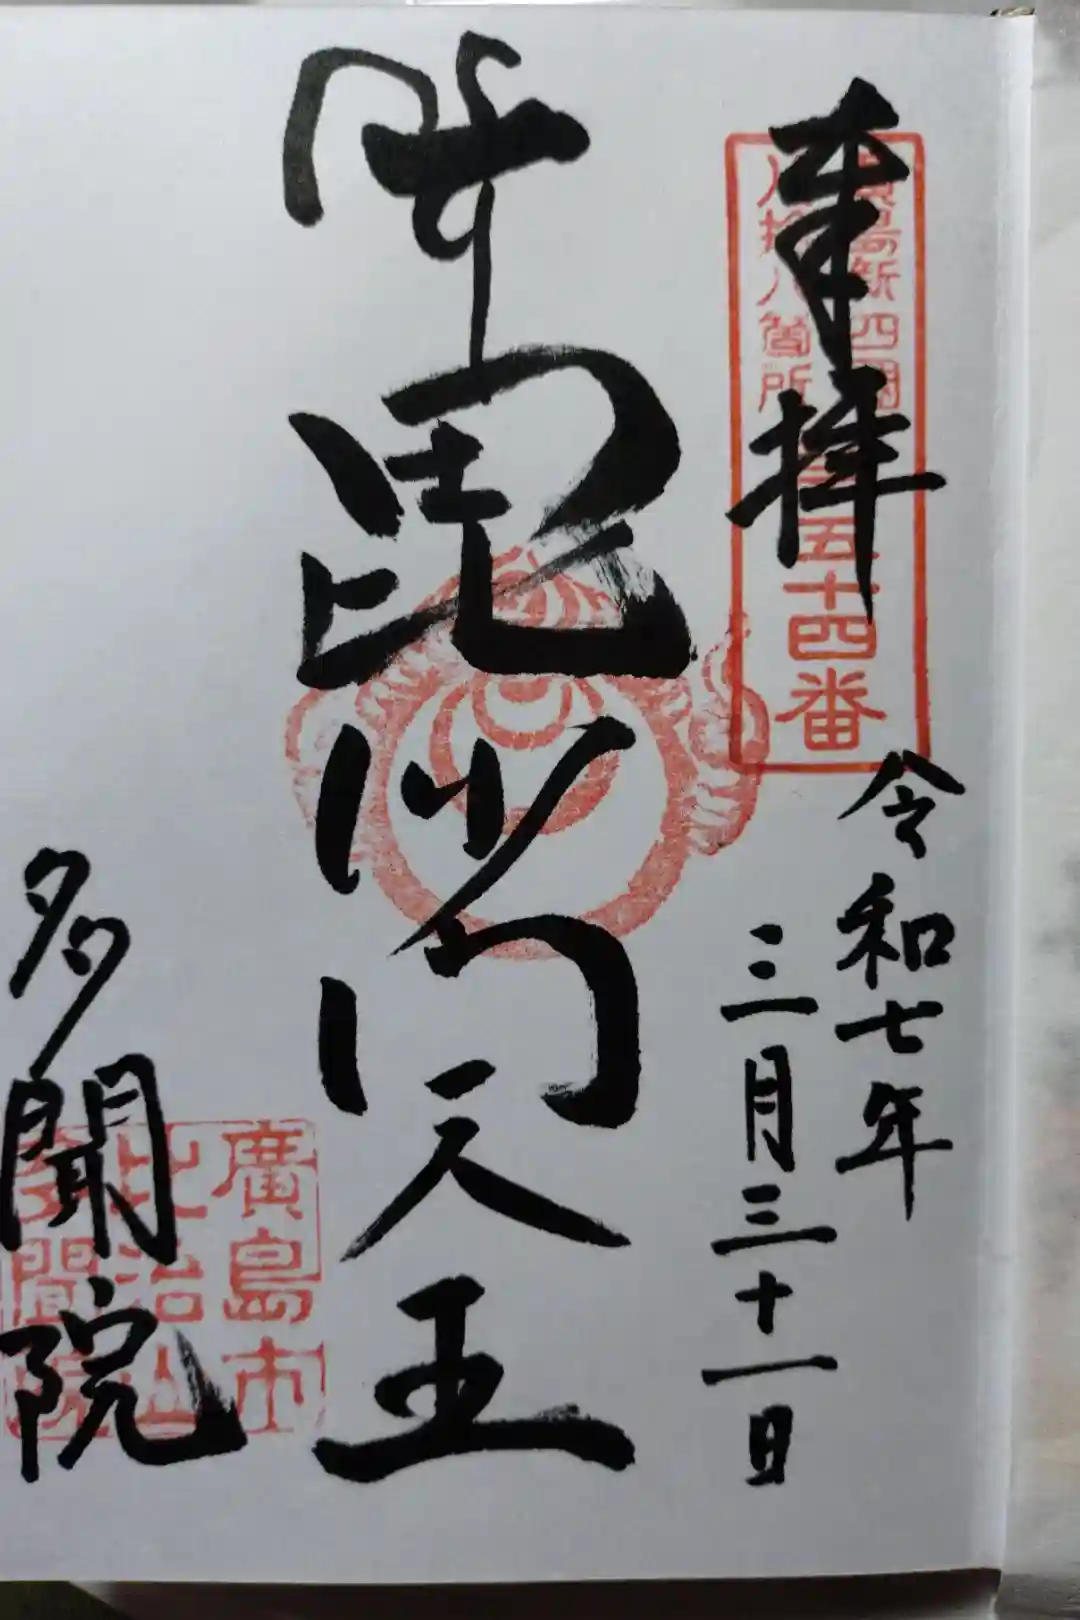 奉拝
廣島新四國
八拾八箇所
五十四番
令和七年
三月三十一日
毘沙門天王
多聞院
廣島市
比治山
多聞院